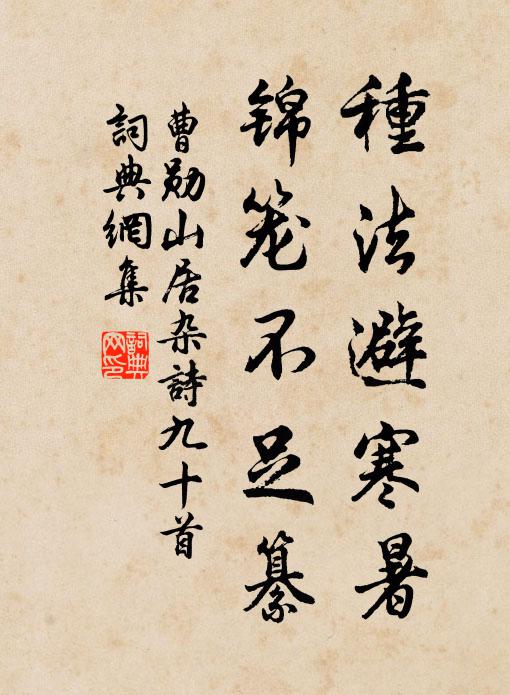 種法避寒暑
锦笼不足纂
曹勋山居杂詩九十首
詞典網集
詞典
网印